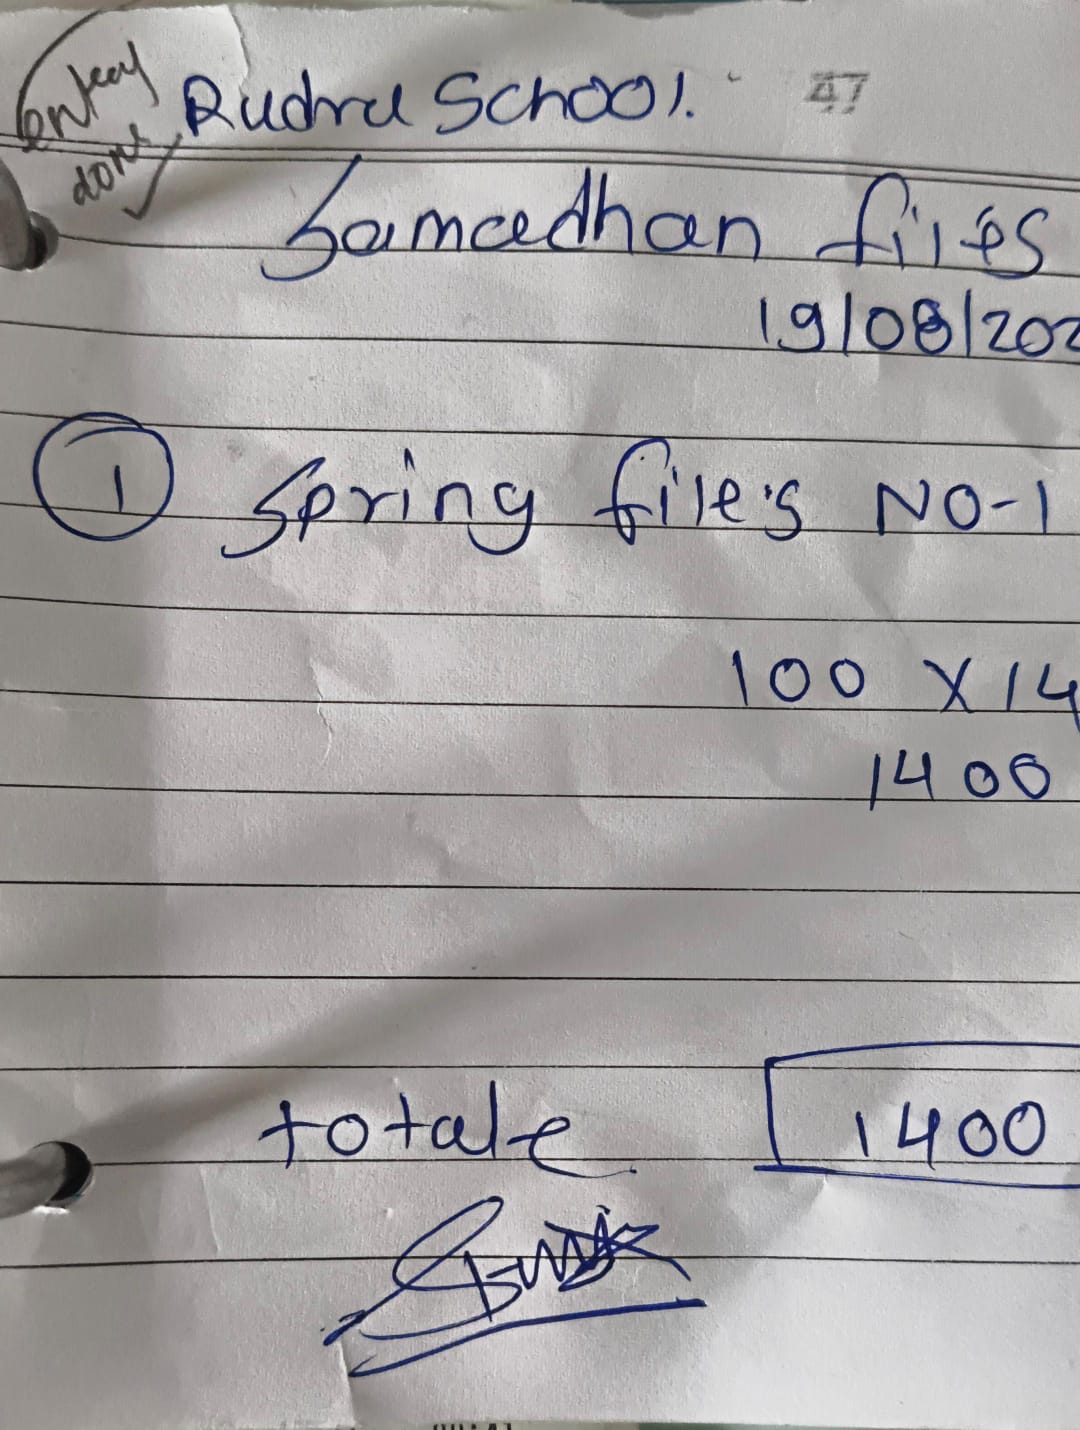 entry
done
Rudra School. 47
Samadhan files
19/08/202
1 Spring file's NO-1
100 X 14
1400
totale 1400